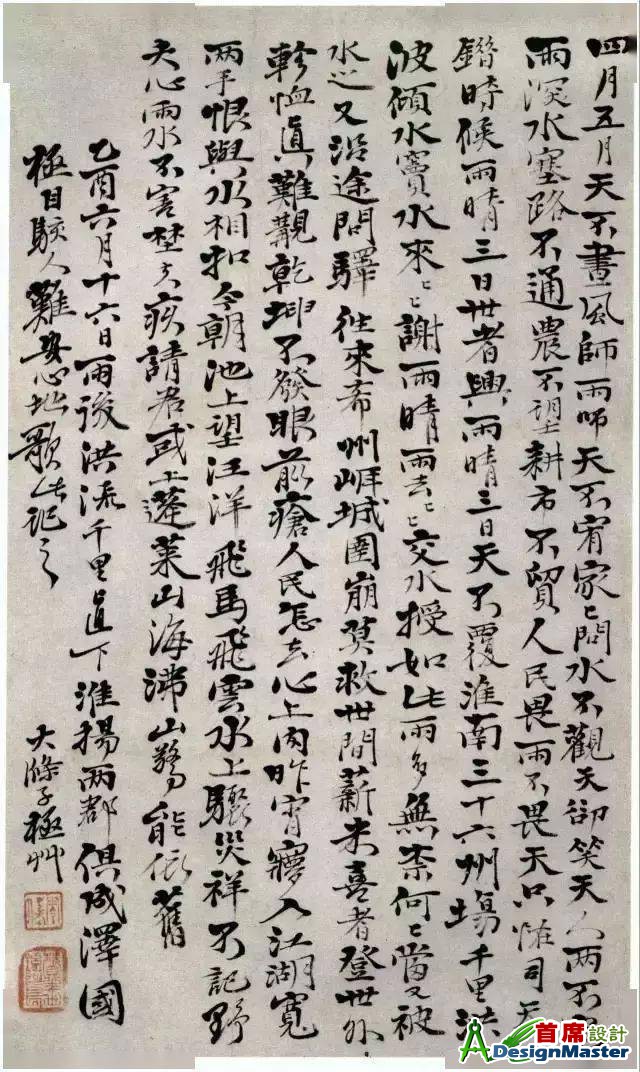 四月五月天不晝風師雨師天不宥家〻問水不觀天卻笑天人兩不
雨深水塞路不通農不望耕市不貿人民畏雨不畏天只恠司天
錯時候雨晴三日世者興雨晴三日天不覆淮南三十六州塲千里洪
波傾水竇水來〻謝雨晴雨去〻交水授如此雨多無柰何〻當又被
水又沿途問驛往來希州岸城圍崩莫救世間薪米喜者登世外
軫恤真難觀乾坤不發眼前瘡人民怎去心上肉昨宵夢入江湖寬
兩手恨與水相扣今朝池上望汪洋飛馬飛雲水上驟災祥不記野
夫心雨水不害疾請君或上蓬萊山海沸山能依舊
乙酉六月十六日雨後洪流千里直下淮揚兩郡俱成澤國
極目駭人難安心地歌此記之
大滌子極艸
首席設計
DesignMaster